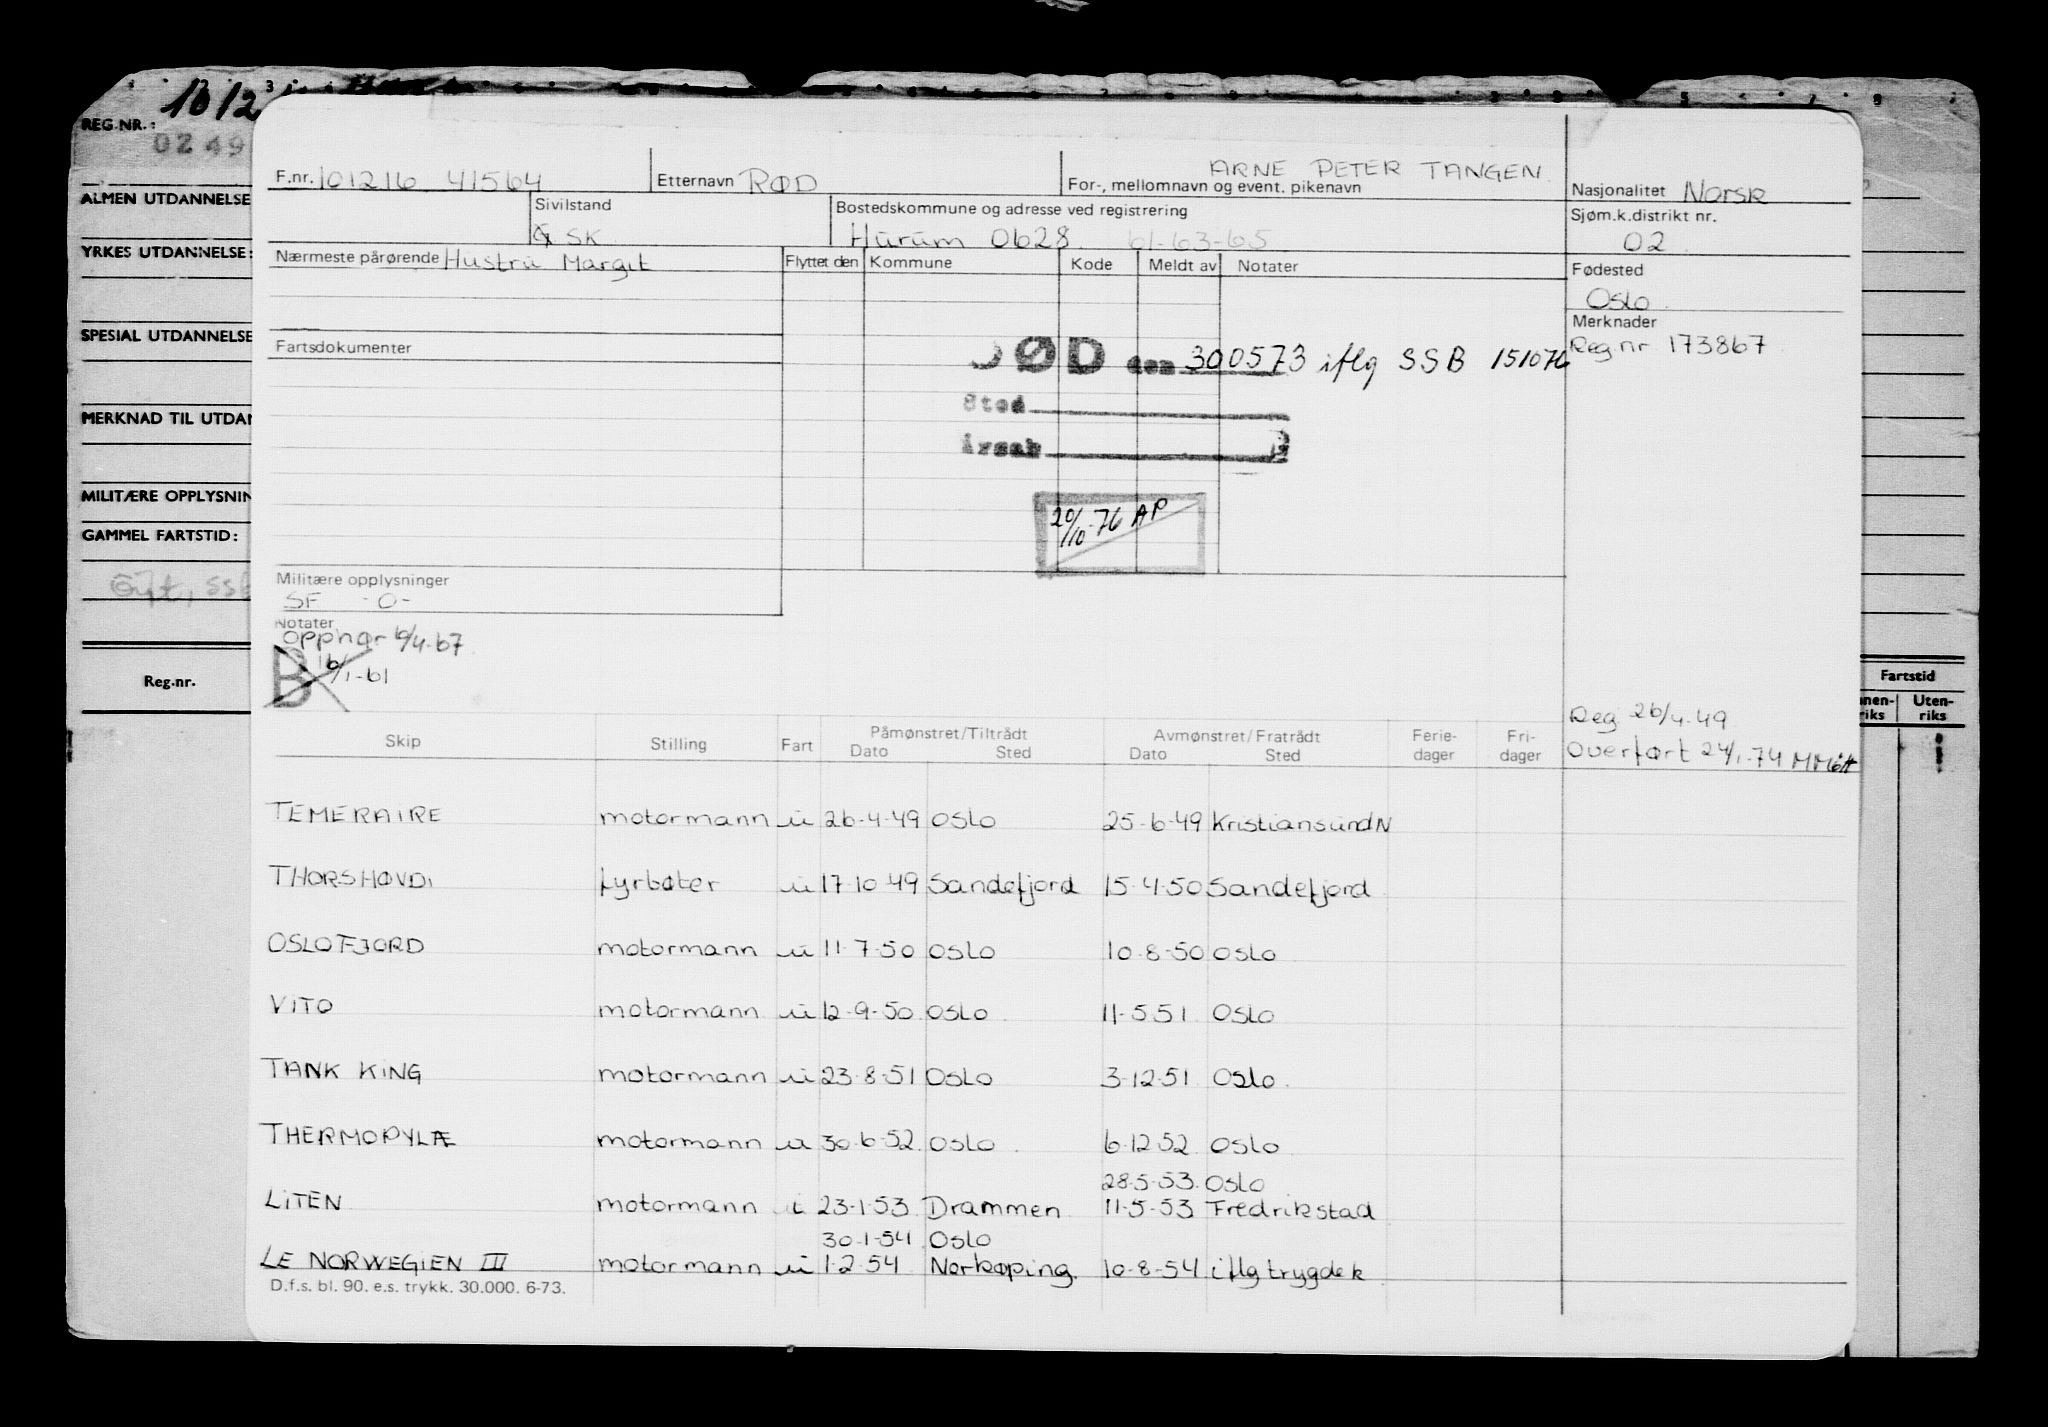 REG.NR.: 1612
0249
ALMEN UTDANNELSE
YRKES UTDANNELSE:
SPESIAL UTDANNELSE
MERKNAD TIL UTDAN
MILITÆRE OPPLYSNIN
GAMMEL FARTSTID:
Reg.nr.
F.nr. 101216 41564 Etternavn RØD For-, mellomnavn og event. pikenavn ARNE PETER TANGEN
Nasjonalitet Norsk
Sivilstand
G SK
Bostedskommune og adresse ved registrering
Hurum 0628 61-63-65
Sjøm.k.distrikt nr.
02
Nærmeste pårørende Hustru Margit
Flyttet den Kommune Kode Meldt av Notater
Fødested
Oslo
Merknader
Reg.nr 173867
Fartsdokumenter
DØD den 300573 iflg SSB 151076
Sted
Årsak
20/10-76 AP
Militære opplysninger
SF -0-
Notater
opphør 6/4-67
B 16/1-61
Reg 26/4-49
Overført 24/1-74
Fartstid
nnen-riks Uten-riks
Skip Stilling Fart Påmønstret/Tiltrådt Avmønstret/Fratrådt Ferie-dager Fri-dager
Dato Sted Dato Sted
TEMERAIRE motormann u 26-4-49 Oslo 25-6-49 Kristiansund N
THORSHØVDI fyrbøter u 17-10-49 Sandefjord 15-4-50 Sandefjord
OSLOFJORD motormann u 11-7-50 Oslo 10-8-50 Oslo
VITO motormann u 12-9-50 Oslo 11-5-51 Oslo
TANK KING motormann u 23-8-51 Oslo 3-12-51 Oslo
THERMOPYLÆ motormann u 30-6-52 Oslo 6-12-52 Oslo
28-5-53 Oslo
LITEN motormann i 23-1-53 Drammen 11-5-53 Fredrikstad
30-1-54 Oslo
LE NORWEGIEN III motormann u 1-2-54 Norkøping 10-8-54 iflg trygdek
D.f.s. bl. 90. e.s. trykk. 30.000. 6-73.